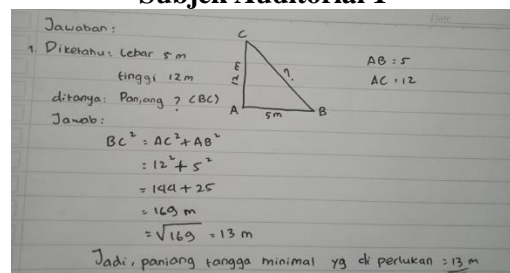 Subjek Auditorial 1
Jawaban :
1. Diketahui : Lebar 5 m
tinggi 12 m
ditanya : Panjang ? (BC)
Jawab :
C
12 m
?
A
5m
B
AB : 5
AC : 12
BC² = AC² + AB²
= 12² + 5²
= 144 + 25
= 169 m
= √169 = 13 m
Jadi, panjang tangga minimal yg di perlukan = 13 m